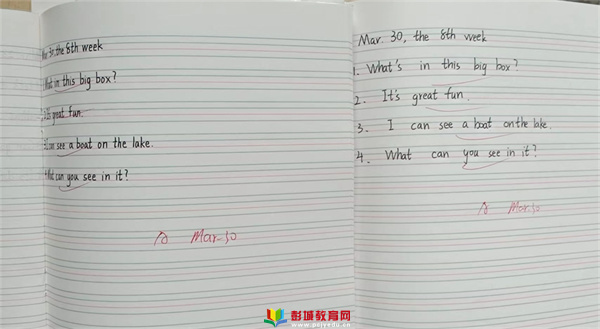 the 8th week
What in this big box?
It's great fun.
I can see a boat on the lake.
What can you see in it?
Mar. 30
Mar. 30, the 8th week
1. What's in this big box?
2. It's great fun.
3. I can see a boat on the lake.
4. What can you see in it?
Mar. 30
彭城教育网
www.pcjyedu.cn